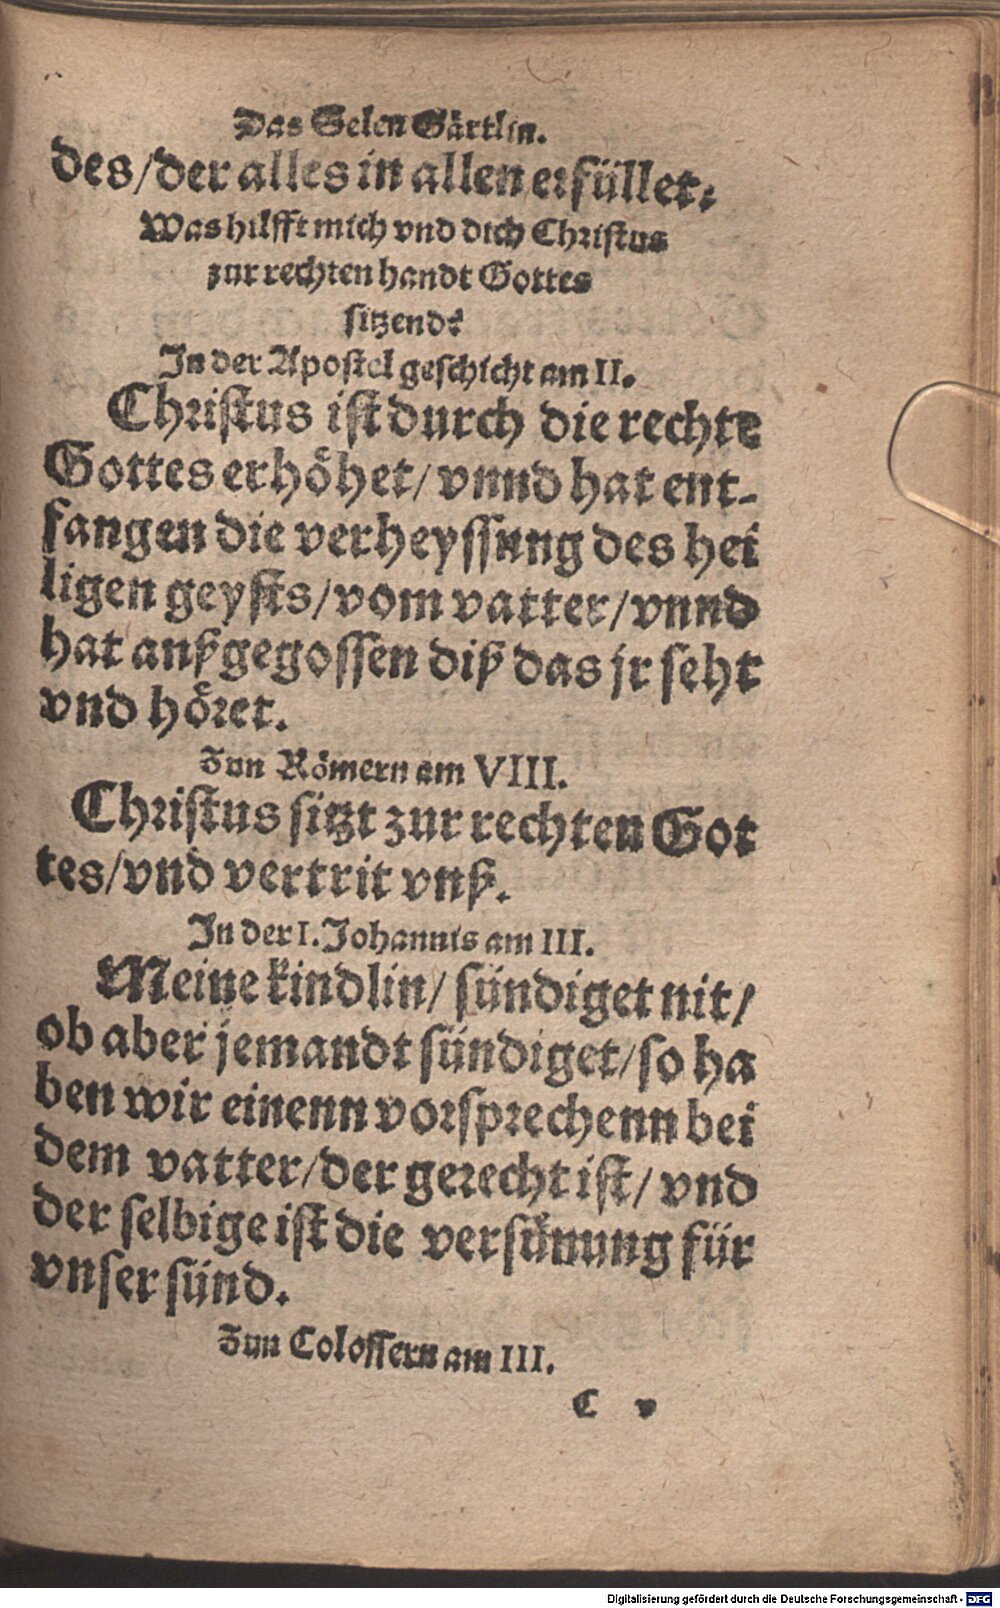 Das Selen Gärtlin.
des/der alles in allen erfüllet.
Was hilfft mich vnd dich Christus
zur rechten handt Gottes
sitzend?
In der Apostel geschicht am II.
Christus ist durch die rechte
Gottes erhöhet/ vnnd hat ent-
fangen die verheyssung des hei
ligen geysts/vom vatter/vnnd
hat außgegossen diß das jr seht
vnd höret.
Zun Römern am VIII.
Christus sitzt zur rechten Got
tes/vnd vertrit vnß.
In der I. Johannis am III.
Meine kindlin/ sündiget nit/
ob aber jemandt sündiget/so ha
ben wir einenn vorsprechenn bei
dem vatter/der gerecht ist/ vnd
der selbige ist die versünung für
vnser sünd.
Zun Colossern am III.
C v
Digitalisierung gefördert durch die Deutsche Forschungsgemeinschaft - DFG